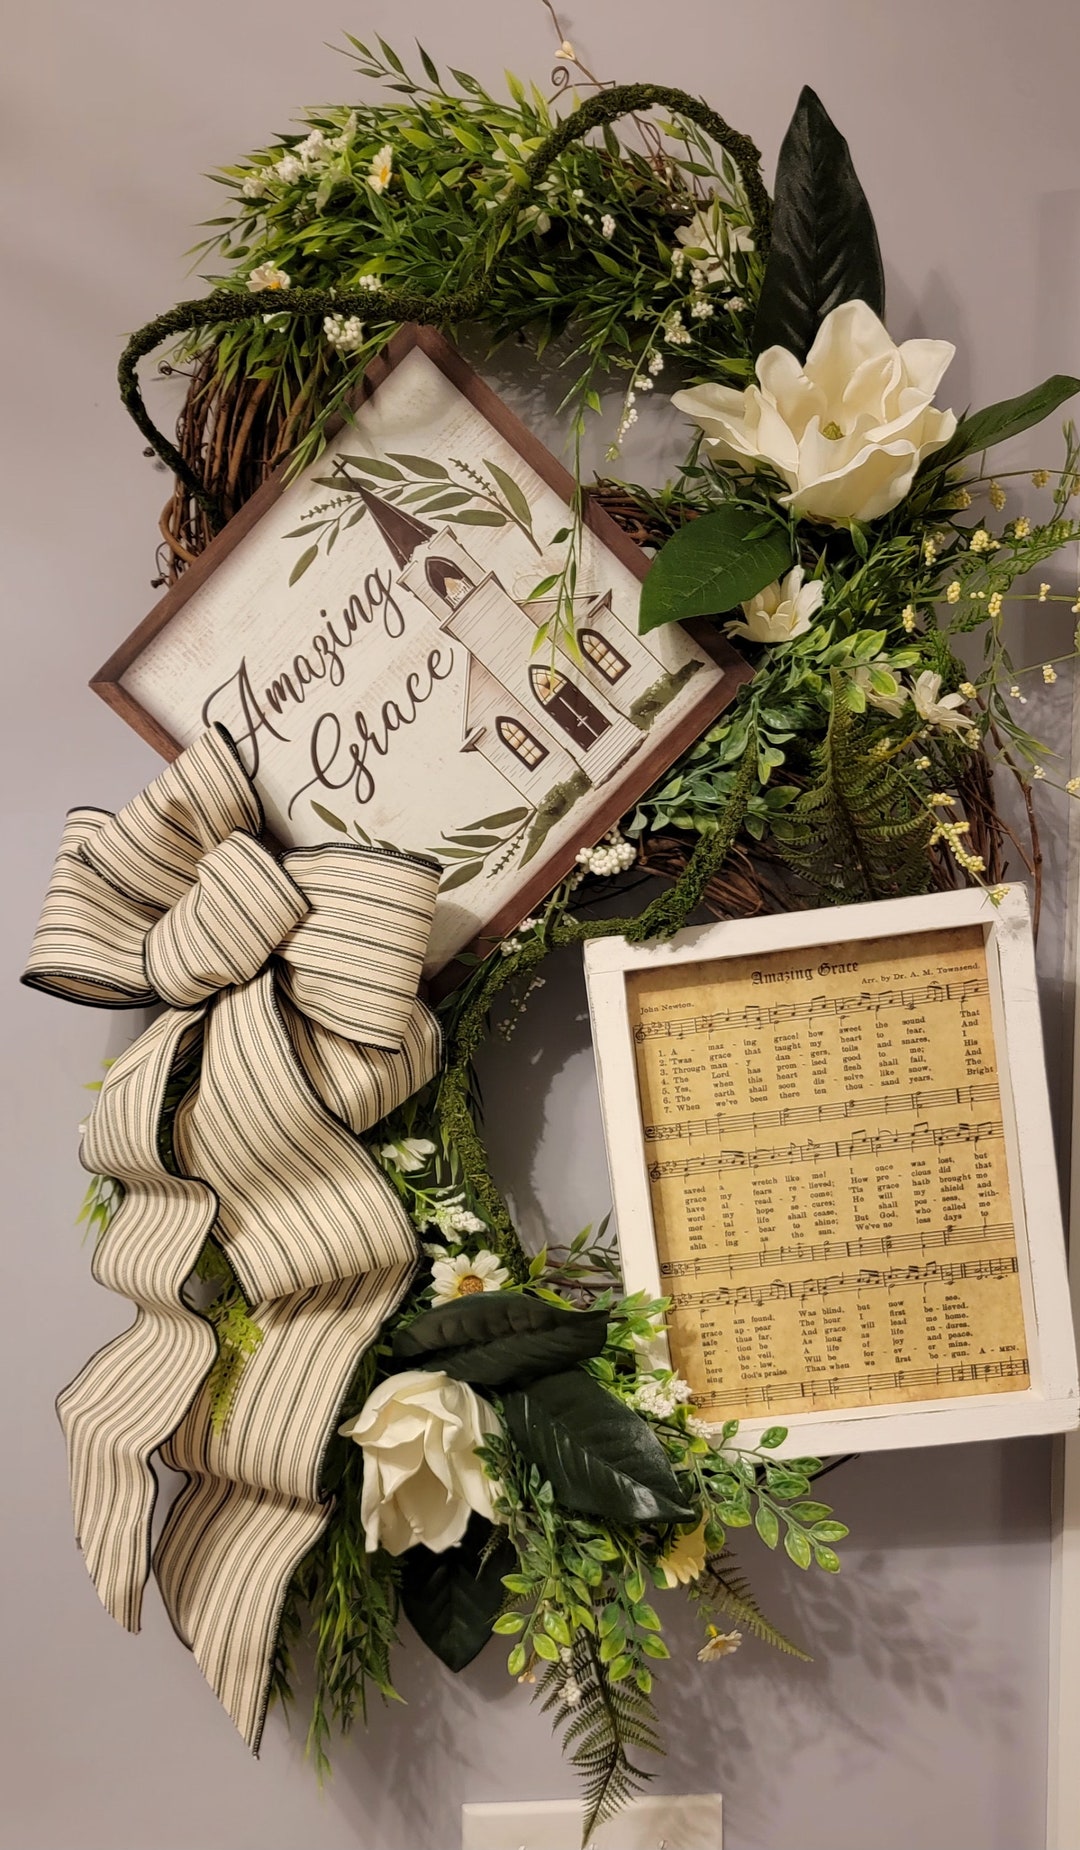 Amazing
Grace
Amazing Grace
Arr. by Dr. A. M. Townsend.
John Newton.
1. A - maz - ing grace! how sweet the sound That
2. 'Twas grace that taught my heart to fear, And
3. Through man - y dan - gers, toils and snares, I
4. The Lord has prom - ised good to me; His
5. Yes, when this heart and flesh shall fail, And
6. The earth shall soon dis - solve like snow, The
7. When we've been there ten thou - sand years, Bright
saved a wretch like me! I once was lost, but
grace my fears re - lieved; How pre - cious did that
have al - read - y come; 'Tis grace hath brought me
word my hope se - cures; He will my shield and
mor - tal life shall cease, I shall pos - sess, with-
sun for - bear to shine; But God, who called me
shin - ing as the sun, We've no less days to
now am found, Was blind, but now I see.
grace ap - pear The hour I first be - lieved.
safe thus far, And grace will lead me home.
por - tion be As long as life en - dures.
in the veil, A life of joy and peace.
here be - low, Will be for - ev - er mine.
sing God's praise Than when we first be - gun. A - MEN.